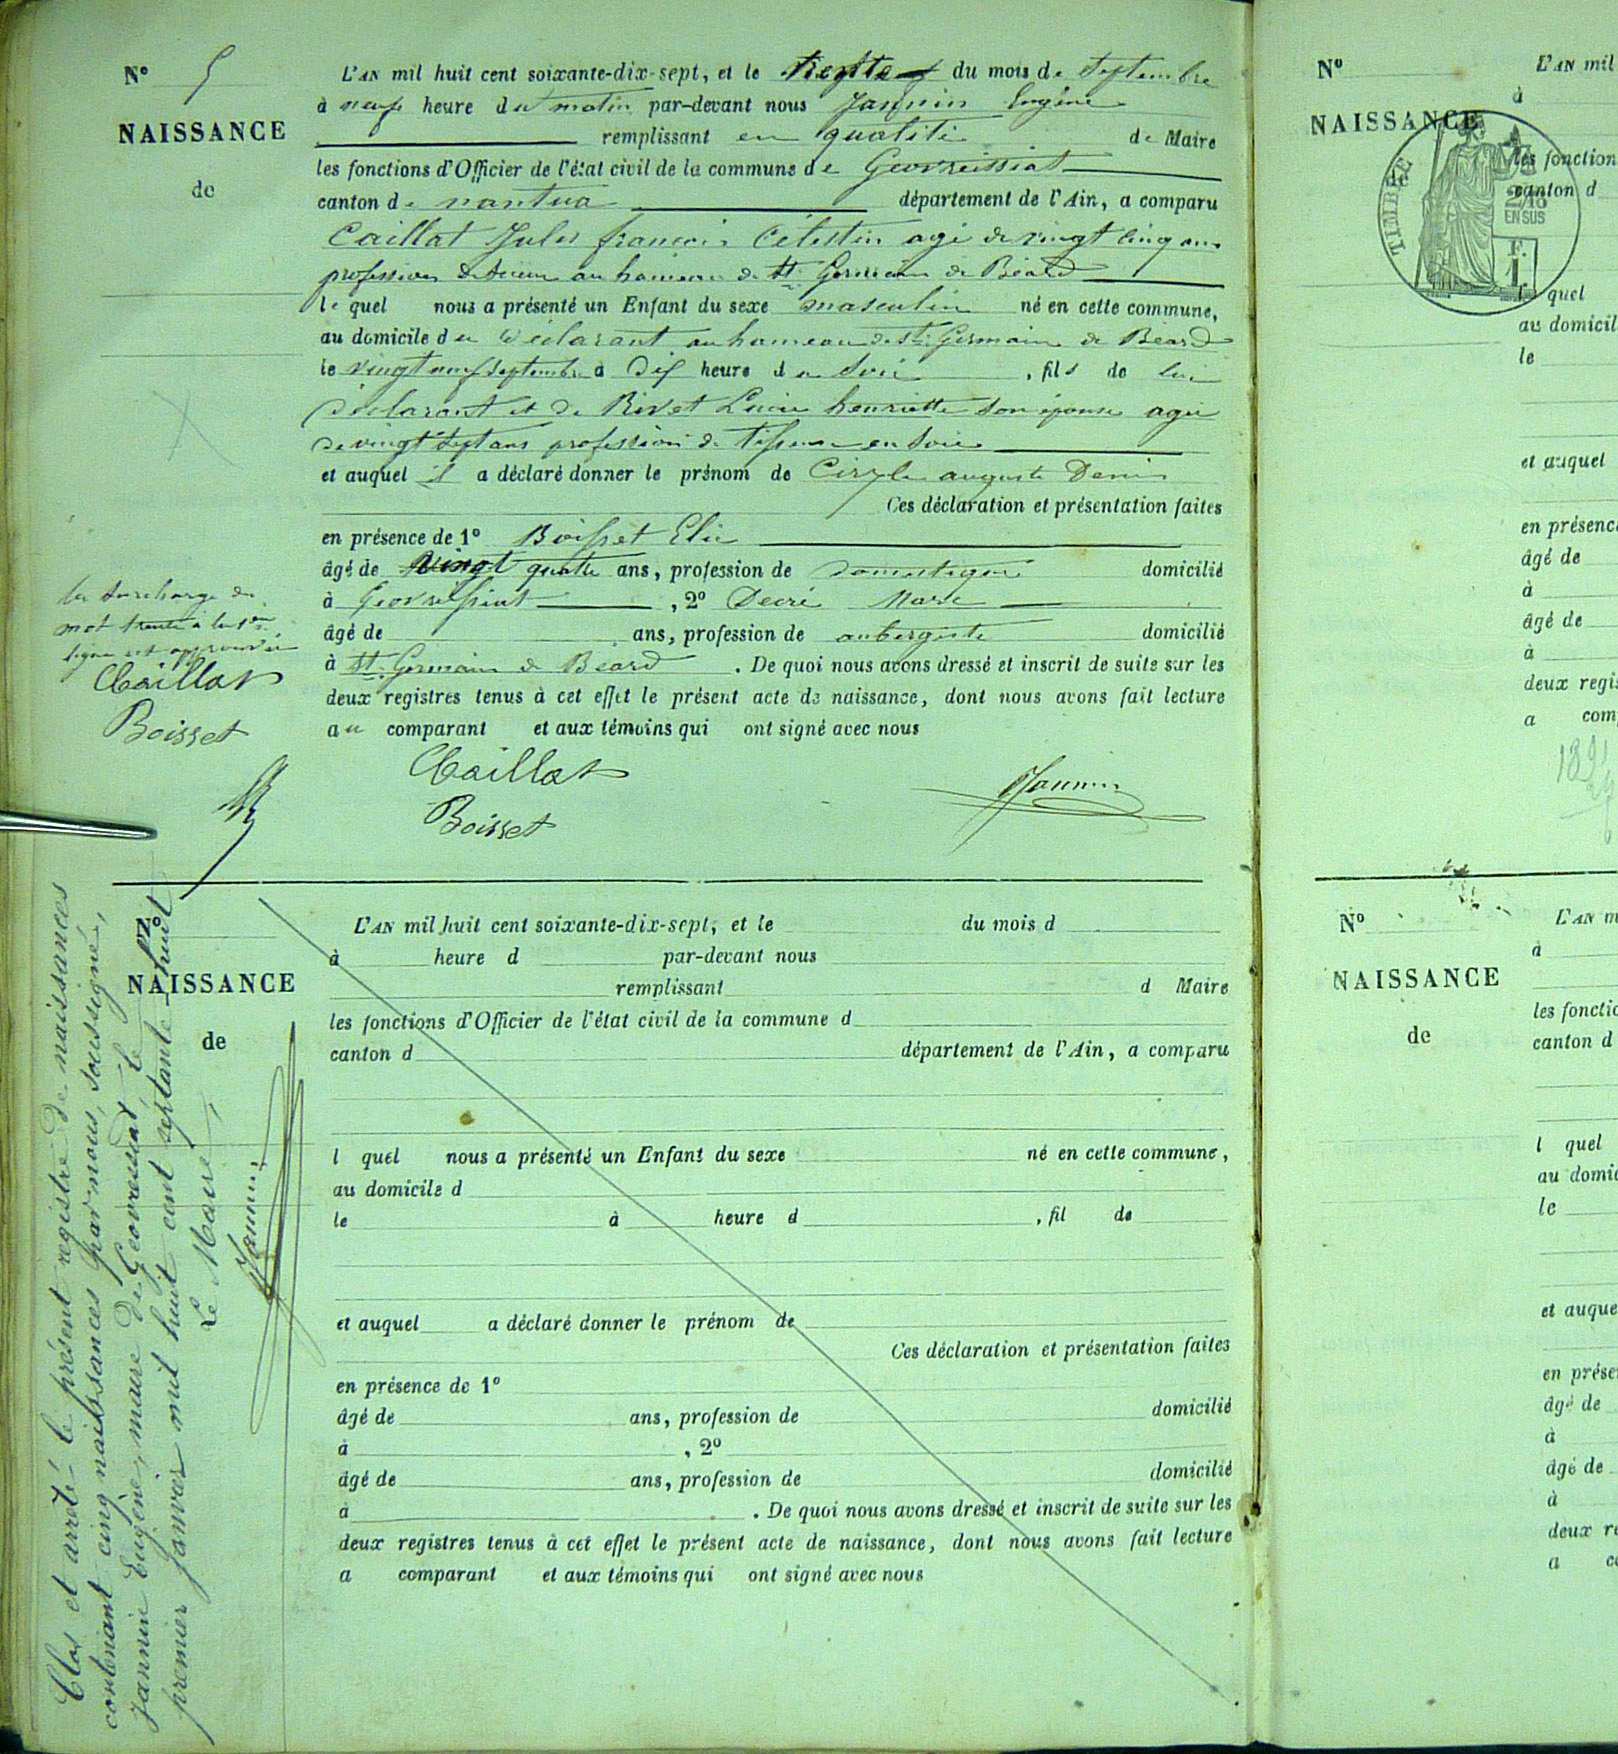 N° 5
NAISSANCE
de
L'AN mil huit cent soixante-dix-sept, et le trente du mois de Septembre
à neuf heure du matin par-devant nous Jannin Eugène
remplissant en qualité de Maire
les fonctions d'Officier de l'état civil de la commune de Geovreissiat
canton de nantua département de l'Ain, a comparu
Caillat Jules françois Célestin agé de vingt cinq ans
profession de au hameau de St Germain de Béard
le quel nous a présenté un Enfant du sexe masculin né en cette commune,
au domicile du déclarant au hameau de St Germain de Béard
le vingt neuf Septembre à Dix heure du Soir, fils de lui
déclarant et de Rivet Lucie henriette Son épouse agée
de vingt Sept ans profession de tisseuse en Soie
et auquel il a déclaré donner le prénom de Ciryle auguste Denis
Ces déclaration et présentation faites
en présence de 1° Boisset Elie
âgé de Vingt quatre ans, profession de domestique domicilié
à Geovreissiat, 2° Decré Marc
âgé de ans, profession de aubergiste domicilié
à St Germain de Béard. De quoi nous avons dressé et inscrit de suite sur les
deux registres tenus à cet effet le présent acte de naissance, dont nous avons fait lecture
au comparant et aux témoins qui ont signé avec nous
Caillat
Boisset
Jannin
la Surcharge du
mot trente à la 1ère
ligne est approuvée
Caillat
Boisset
N°
NAISSANCE
de
L'AN mil huit cent soixante-dix-sept, et le du mois d
à heure d par-devant nous
remplissant d Maire
les fonctions d'Officier de l'état civil de la commune d
canton d département de l'Ain, a comparu
l quel nous a présenté un Enfant du sexe né en cette commune,
au domicile d
le à heure d , fil de
et auquel a déclaré donner le prénom de
Ces déclaration et présentation faites
en présence de 1°
âgé de ans, profession de domicilié
à , 2°
âgé de ans, profession de domicilié
à . De quoi nous avons dressé et inscrit de suite sur les
deux registres tenus à cet effet le présent acte de naissance, dont nous avons fait lecture
a comparant et aux témoins qui ont signé avec nous
Clos et arrêté le présent registre de naissances
contenant cinq naissances par nous, soussigné,
Jannin Eugène, maire de Geovressiat, le
premier Janvier mil huit cent septante-huit
Le Maire,
Jannin
N°
NAISSANCE
L'AN mil
à
les fonction
canton d
TIMBRE
2/10
EN SUS
F.
1.
quel
au domicil
le
et auquel
en présenc
âgé de
à
âgé de
à
deux regis
a com
N°
NAISSANCE
de
L'AN m
à
les fonctio
canton d
l quel
au domic
le
et auque
en prése
âgé de
à
âgé de
à
deux re
a co